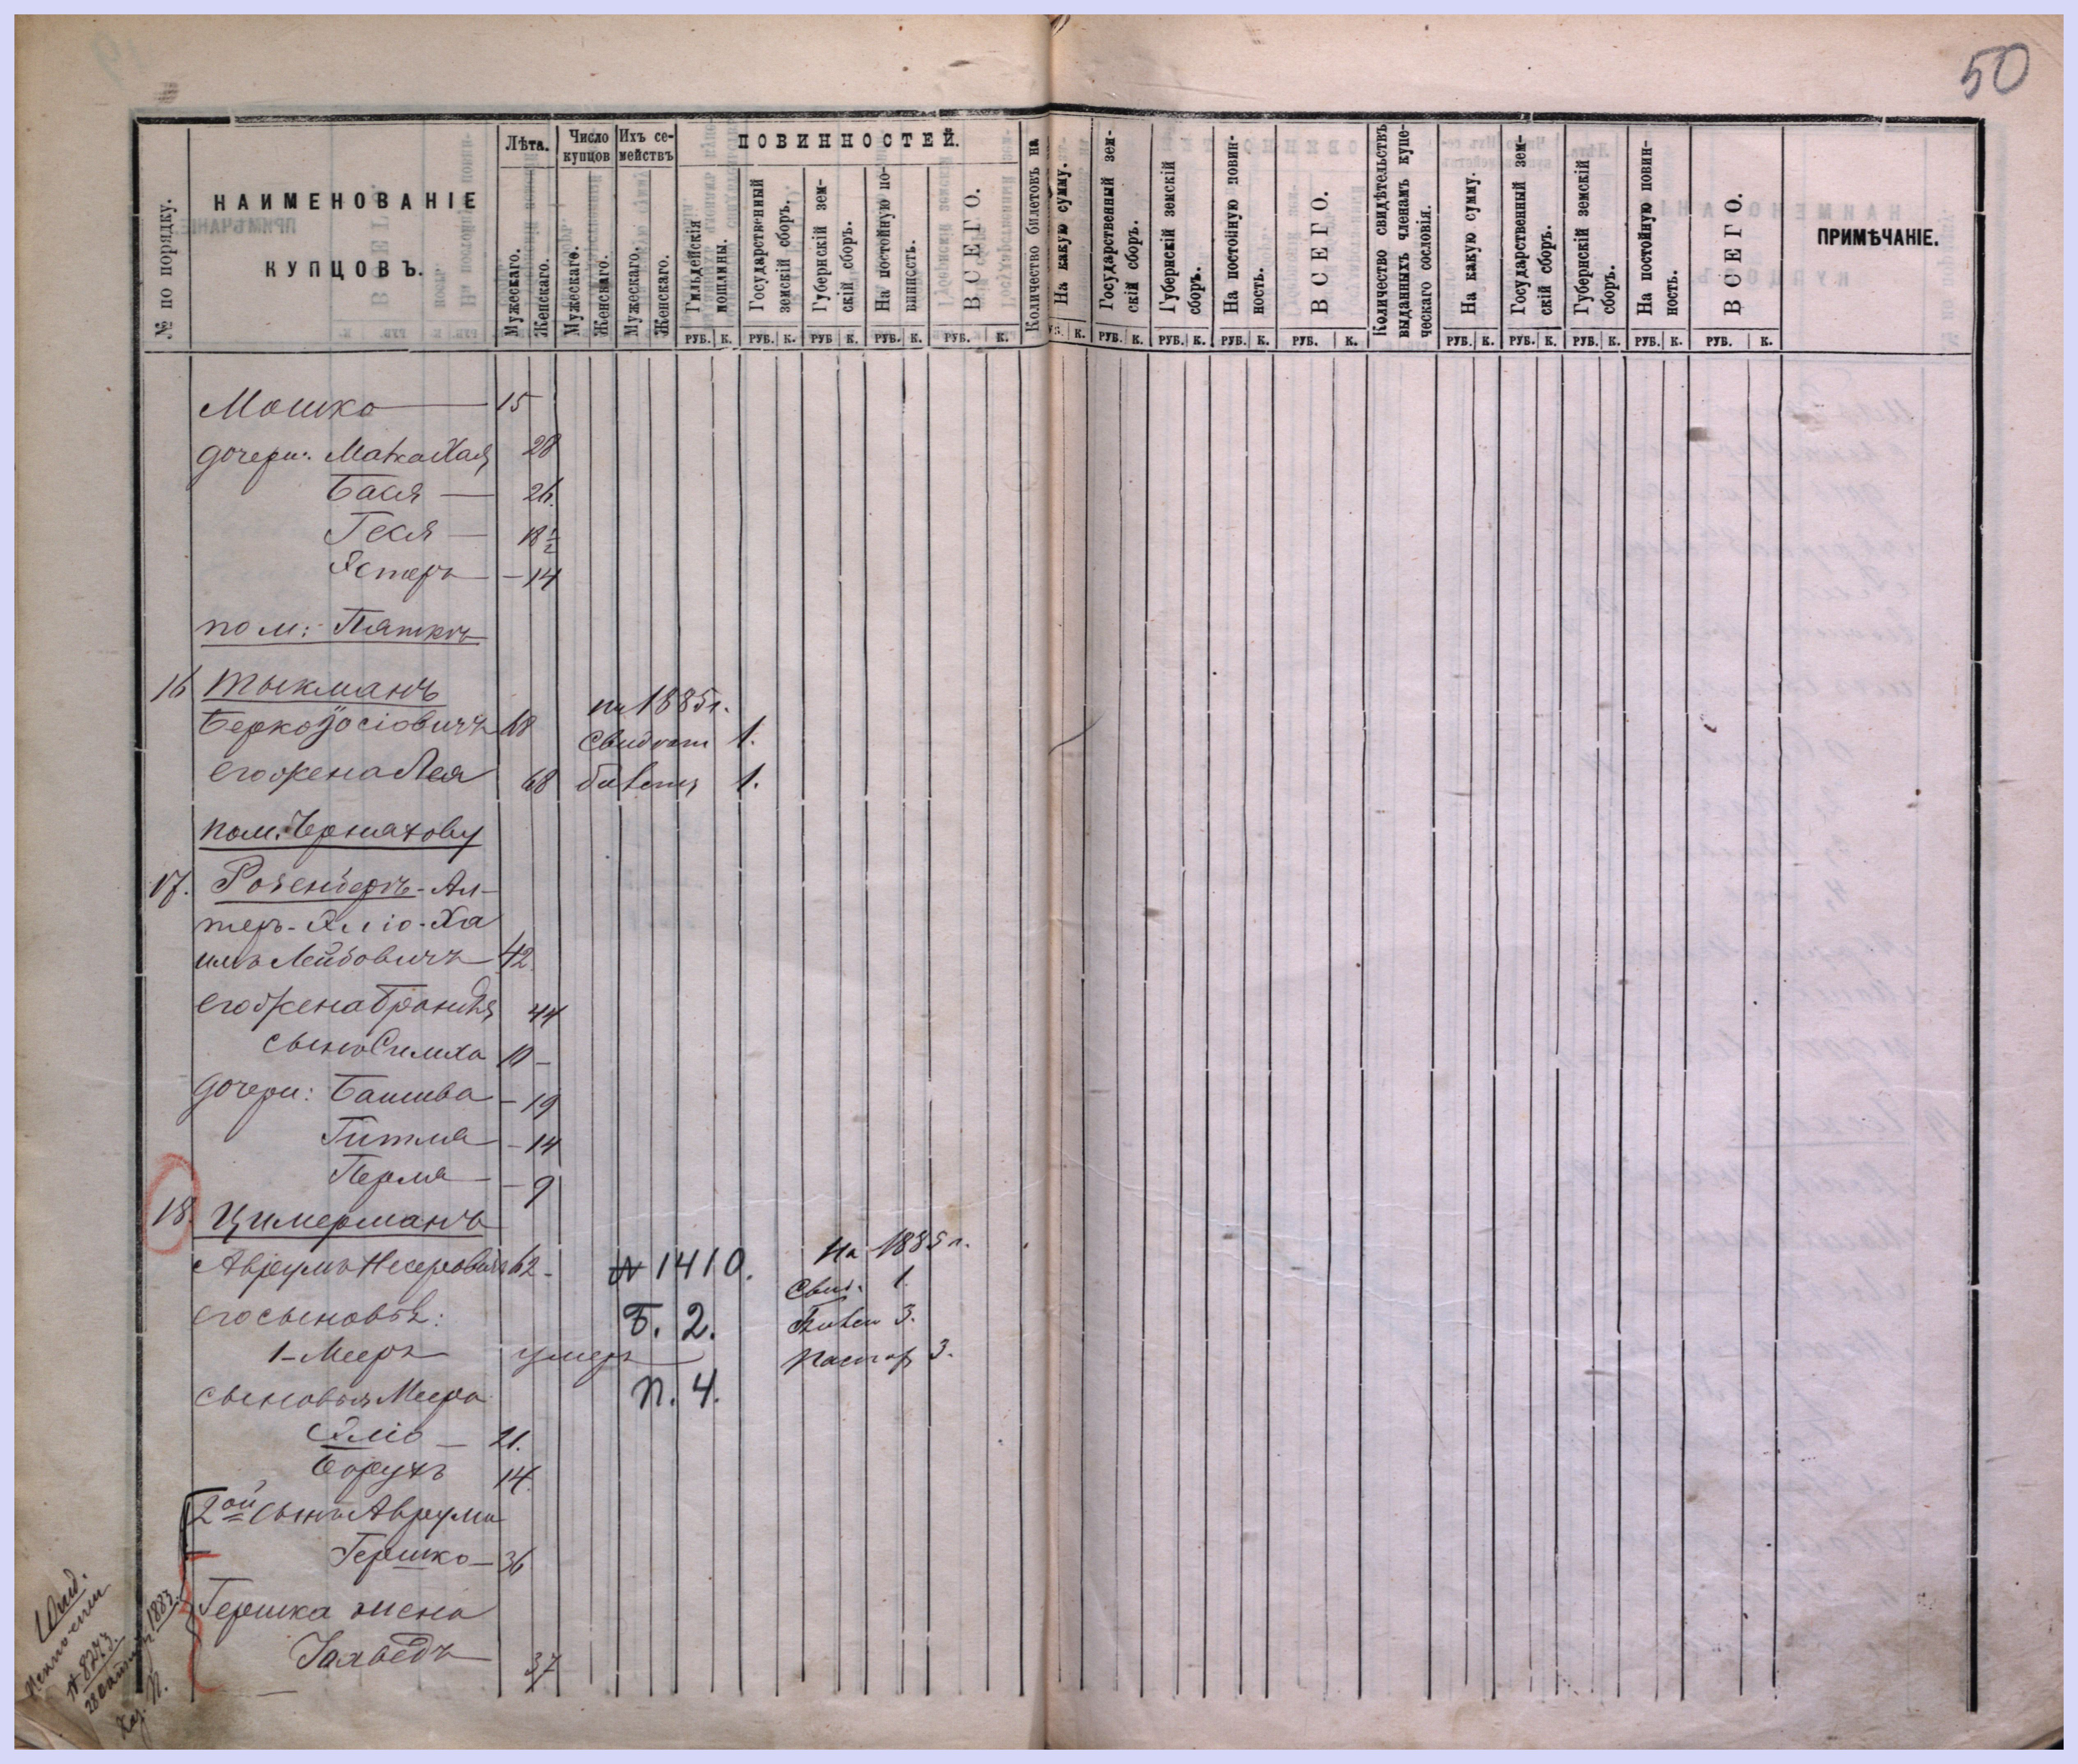 50
№ по порядку.
НАИМЕНОВАНІЕ
КУПЦОВЪ.
Лѣта.
Мужескаго.
Женскаго.
Число купцов
Мужескаго.
Женскаго.
Ихъ се-
мействъ
Мужескаго.
Женскаго.
ПОВИННОСТЕЙ.
Гильдейскія
пошлины.
РУБ. К.
Государственный
земскій сборъ.
РУБ. К.
Губернскій зем-
скій сборъ.
РУБ К.
На постойную по-
винность.
РУБ. К.
ВСЕГО.
РУБ. К.
Количество билетовъ на
На какую сумму.
К.
Государственный зем-
скій сборъ.
РУБ. К.
Губернскій земскій
сборъ.
РУБ. К.
На постойную повин-
ность.
РУБ. К.
ВСЕГО.
РУБ. К.
Количество свидѣтельствъ
выданныхъ членамъ купе-
ческаго сословія.
На какую сумму.
РУБ. К.
Государственный зем-
скій сборъ.
РУБ. К.
Губернскій земскій
сборъ.
РУБ. К.
На постойную повин-
ность.
РУБ. К.
ВСЕГО.
РУБ. К.
ПРИМѢЧАНІЕ.
Мошко 15
дочери: Малка Хая 28
Бася — 26
Геся — 18 1/2
Эстеръ — 14
пом: Пяткъ
16 Тыкманъ
на 1885 г.
Берко Іосіовичъ 68
Свидѣт 1.
его жена Лея 68 билетъ 1.
пом. Черняхову
17. Розенбергъ - Ал-
теръ - Эліо - Ха
имъ Лейбовичъ 42
его жена Брандля 44
сынъ Симха 10 -
дочери: Башива - 19
Гитля - 14
Перля - 9
18. Цимерманъ
Аврумъ Нехеровичъ 62 - № 1410. На 1885 г.
Свид. 1.
его сыновья: Б. 2. билет 3.
1 - Мееръ умеръ Паспор 3.
сыновья Меера П. 4.
Эліо — 21.
Борухъ 14.
2ой сынъ Аврума
Гершко — 36
Гершка жена
Іохведъ 37
№ 8273.
28 1883.